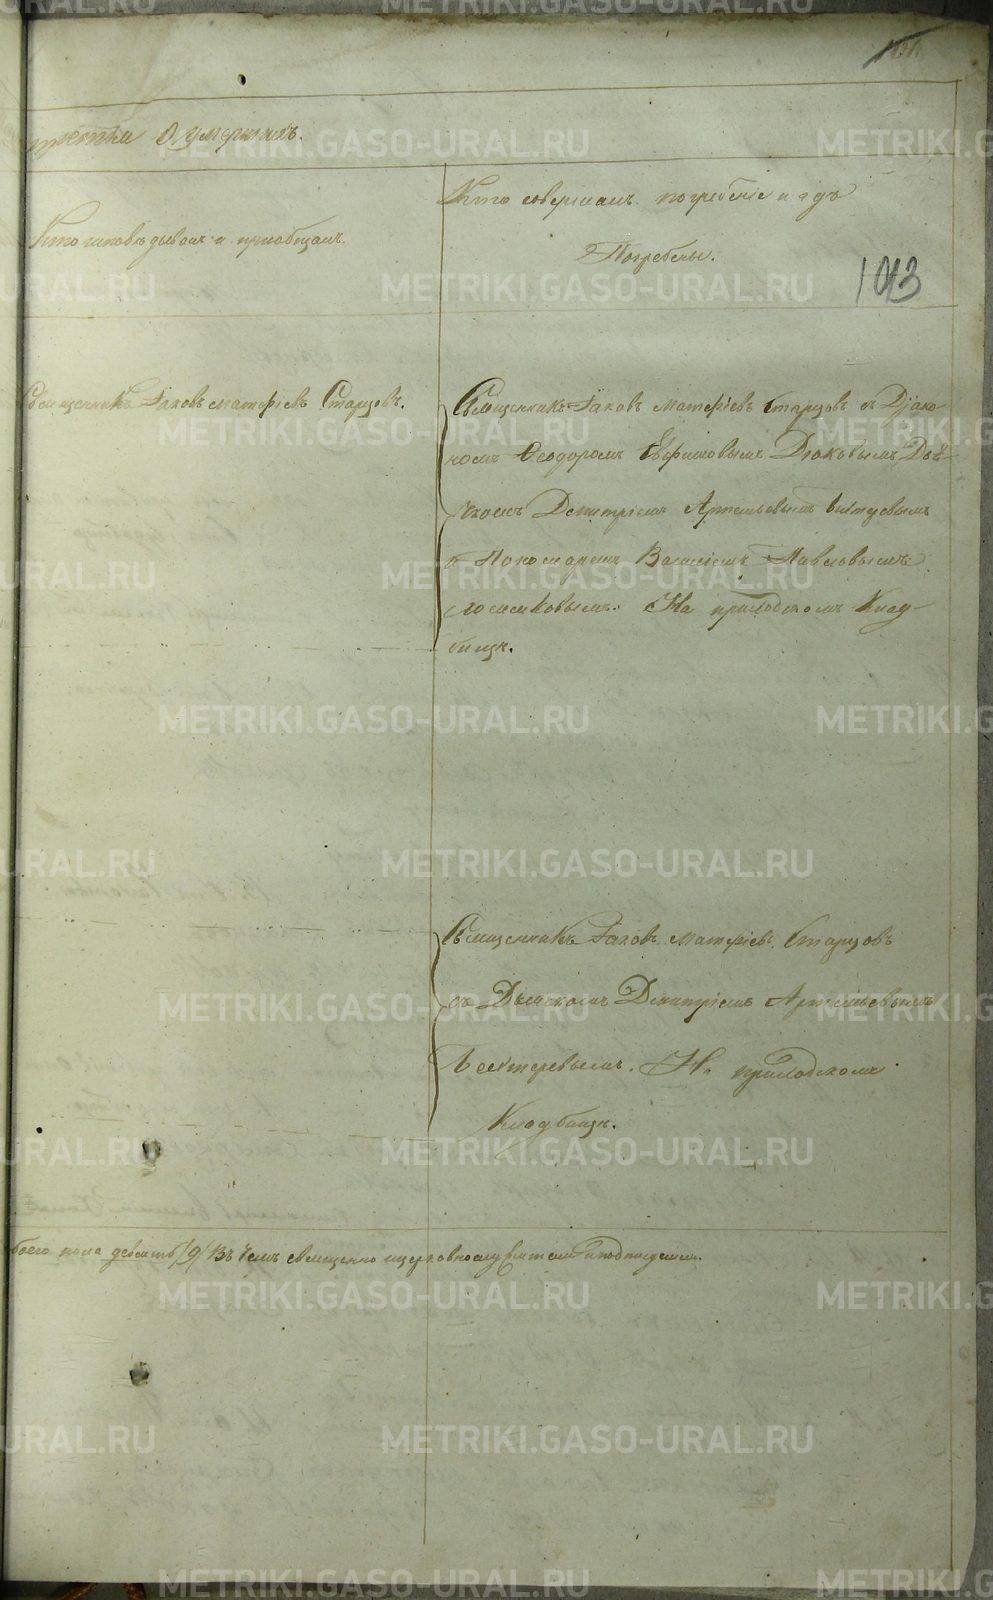 третья О умершихъ.
Кто исповѣдывалъ и приобщалъ.
Кто совершалъ погребенiе и гдѣ
Погребены.
1013
Священникъ Iаковъ Матфiевъ Старцовъ.
Священникъ Iаковъ Матфiевъ Старцовъ съ Дiако-
номъ Ѳеодоромъ Евфимовымъ Дюковымъ, Дья-
чкомъ Димитрiемъ Артемьевымъ
и Пономаремъ Василiемъ Павловымъ
На приходскомъ Клад-
бищѣ.
Священникъ Iаковъ Матфiевъ Старцовъ
съ Дьячкомъ Димитрiемъ Артемьевымъ
На приходскомъ
Кладбищѣ.
боего пола девять /9/ Въ чемъ священно и церковнослужители и подписуемся.
METRIKI.GASO-URAL.RU